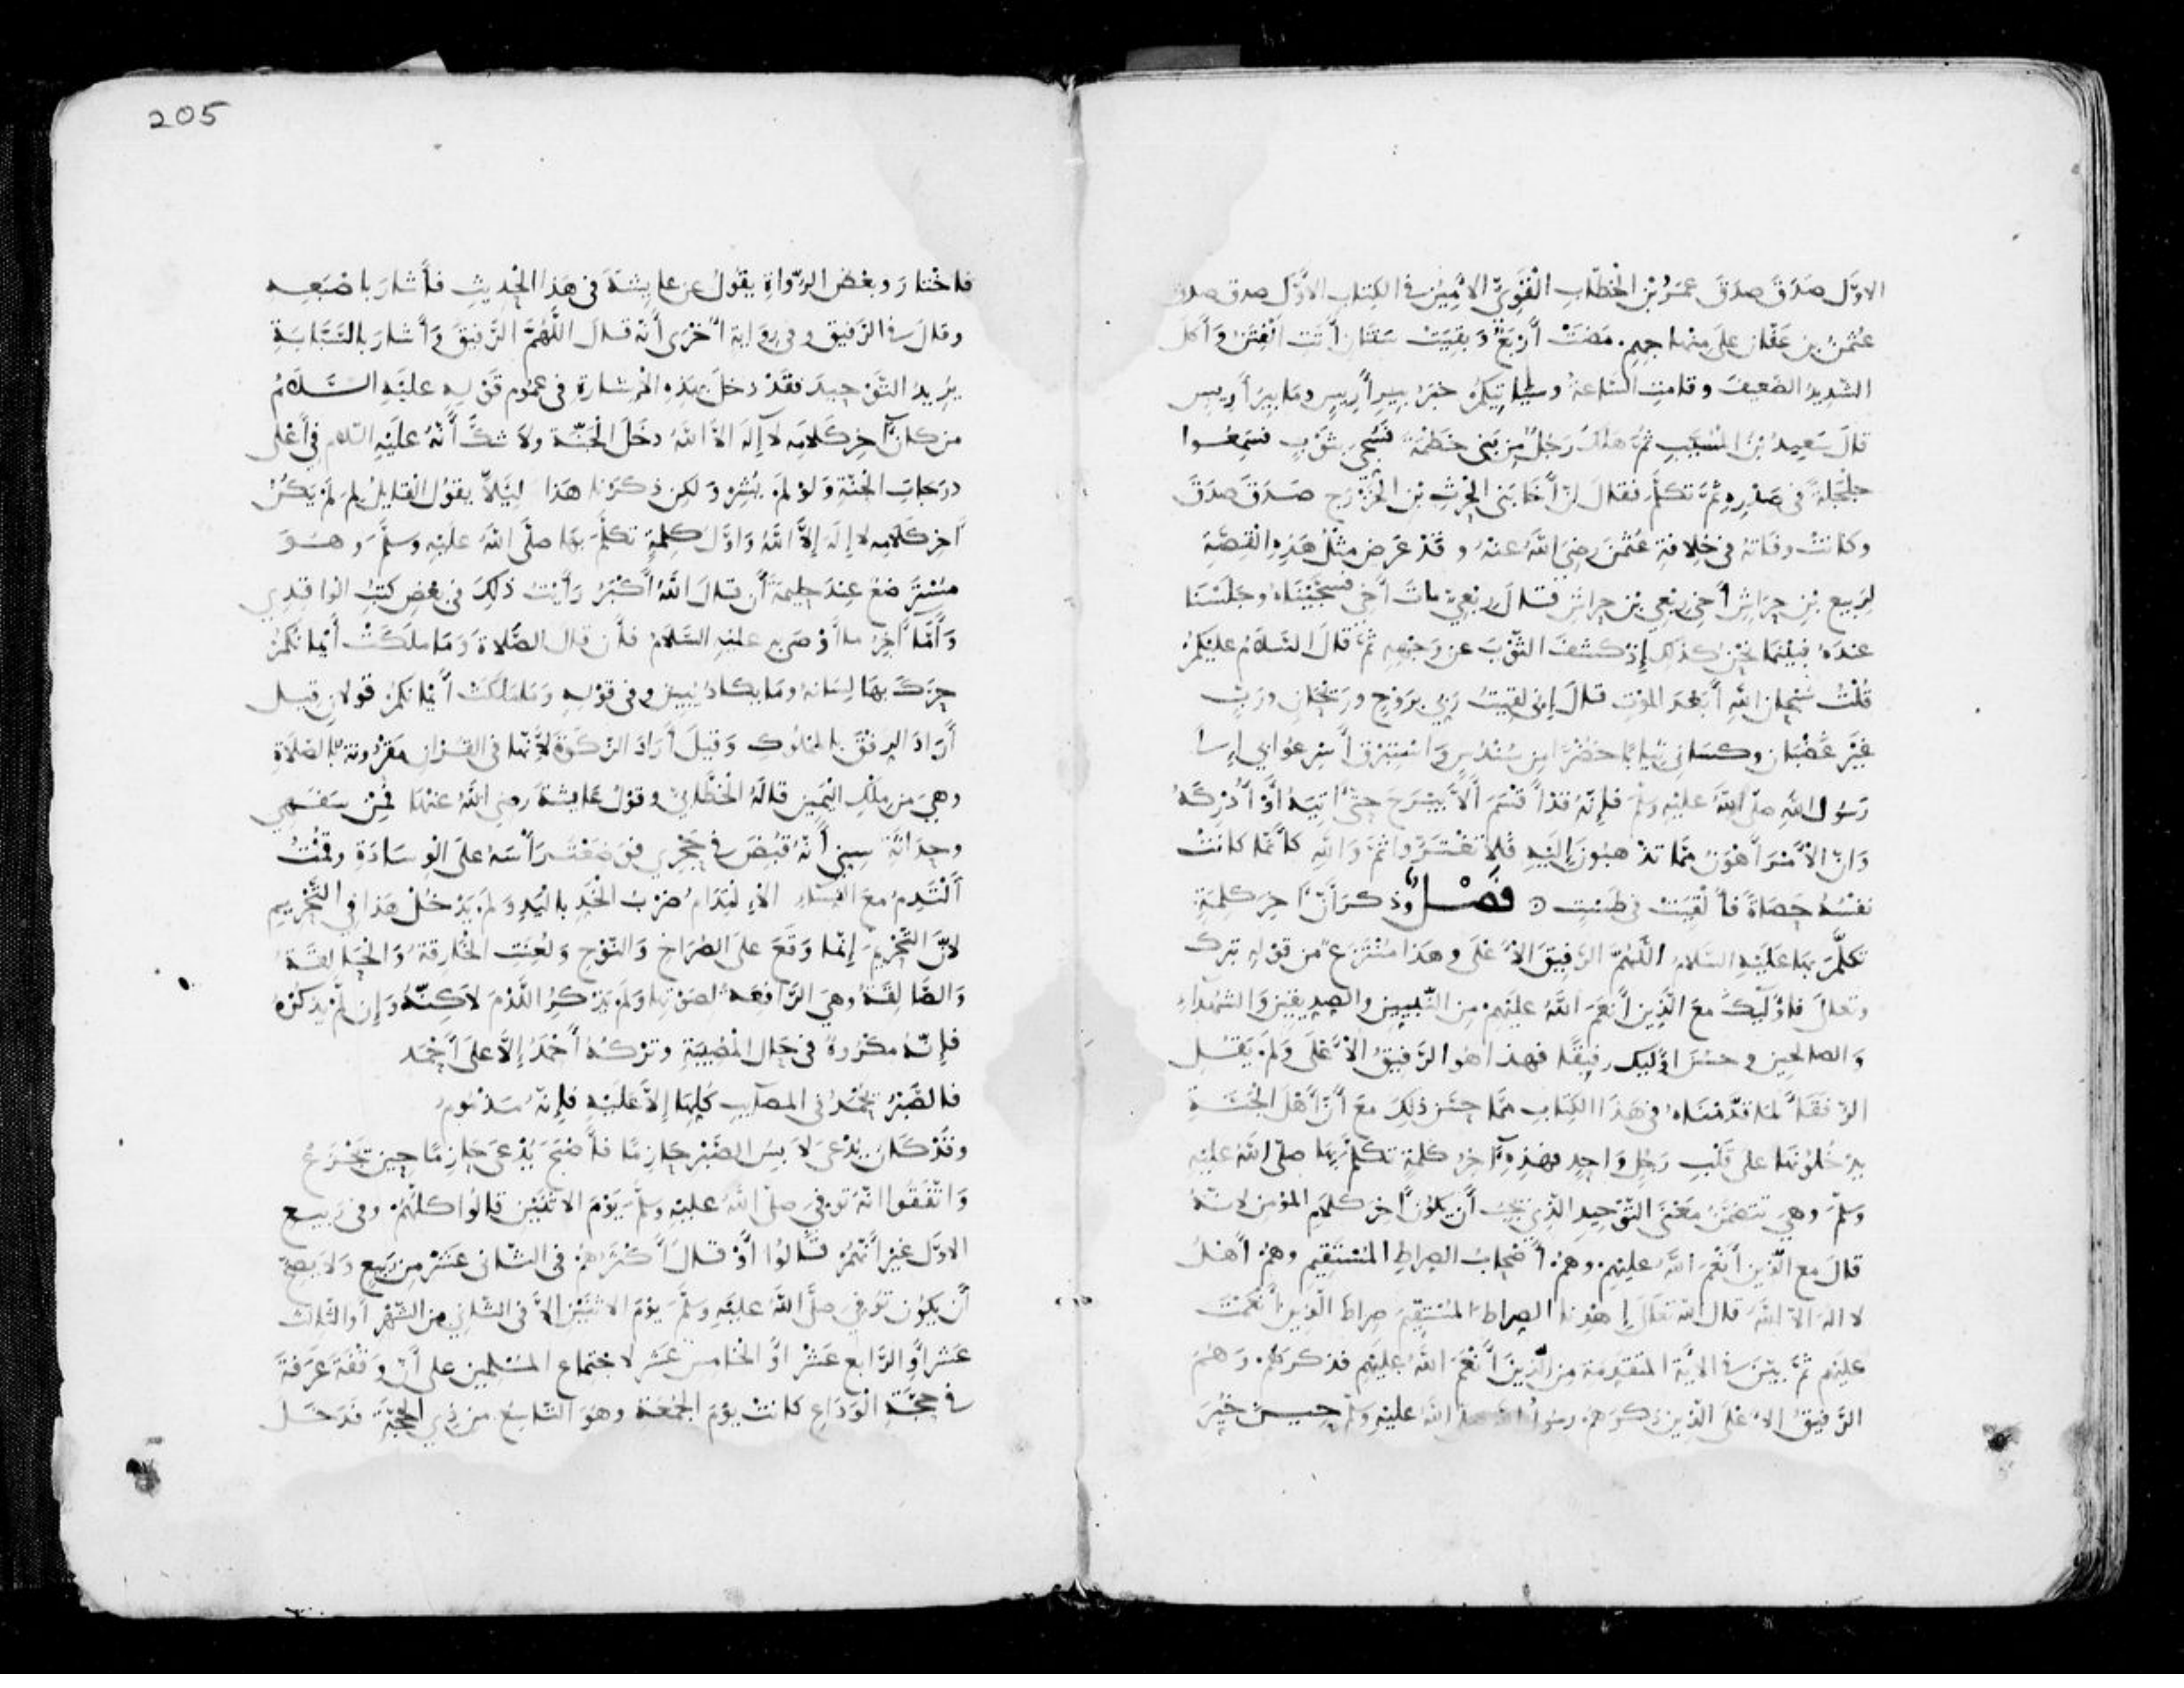 الاوّل صَدَقَ صَدَقَ عمَرُ بْن الخطّابِ القَوِيّ الامِينُ في الكِتَابِ الاوّل صدق صدق
عثمنُ بن عَفّانَ على منهاجهِم. مَضَتْ أرْبَعٌ وَبقِيَتْ سَنَتَان أتَتِ الْفِتَنُ وَأكَلَ
الشّدِيدُ الضّعِيفَ وقامتِ السّاعةُ وسيَاتيكمْ خبَرُ بِيرِ أرِيسٍ ومَا بِيرُ أرِيسٍ
قالَ سَعِيدُ بْنُ المُسَيّبِ ثمّ هَلكَ رَجُلٌ مِن بَني خَطْمَةَ فَسُجِّيَ بثَوْبٍ فسَمِعُوا
جلْجَلةً في صَدْرِهِ ثمّ تكلّمَ فقالَ إنّ أخَا بَني الحرِثِ بْنِ الخَزْرَجِ صَدَقَ صَدَقَ
وكانتْ وفَاتهُ في خِلافةِ عُثمٰنَ رضيَ اللهُ عنهُ وقَدْ عَرَضَ مثْلُ هَذِهِ القِصّةِ
لرَبِيعِ بْنِ حِرَاشٍ أخي رِبْعِي بْنِ حِرَاشٍ قالَ رِبْعِيّ ماتَ أخِي فسَجّيْنَاهُ وجَلَسْنَا
عندَهُ فبَيْنمَا نحْنُ كذلِكَ إذ كشَفَ الثّوْبَ عن وَجْهِهِ ثمّ قالَ السّلَامُ عليْكمْ
قُلْتُ سُبْحانَ اللهِ أبَعْدَ الموْتِ قالَ إني لَقِيتُ رَبّي برَوْحٍ ورَيْحَانٍ ورَبٍّ
غيْرِ غَضْبَانَ وكسَانِي ثِيَابًا خُضْرًا مِن سُنْدُسٍ وَاسْتَبْرَقٍ أسْرِعُوا بي إلى
رَسُولِ اللهِ صلّى اللهُ عليْهِ وَسَلّمَ فإنّهُ قدْ أقسَمَ ألّا يبْرَحَ حتّى آتِيَهُ أوْ أُدْرِكَهُ
وَانّ الأمْرَ أهْوَنُ ممّا تذْهبُونَ إليْهِ فلا تَغْتَرّوا ثمّ وَاللهِ كأنّمَا كانَتْ
نفسُهُ حَصَاةً فأُلْقِيَتْ في طسْتٍ ⊙ فَصْلٌ وذكرَ أنّ آخِرَ كلِمَةٍ
تكلّمَ بهَا عَليْهِ السّلامُ اللّهُمّ الرّفِيقَ الأعْلَى وهَذا مُنْتَزَعٌ من قوْلِهِ تبركَ
وتعلى فاؤلَيِكَ مَعَ الّذِينَ أنعَمَ اللهُ عليْهِمْ مِنَ النّبيِينَ والصِدِيقينَ وَالشهَدَاءِ
وَالصالحِينَ وحسُنَ اوليِكَ رفِيقًا فهذا هُوَ الرّفِيقُ الأعْلَى وَلَم يَقُلِ
الرّفقَاءَ لمَا قدّمْنَاهُ في هَذا الكِتَابِ ممّا حسّنَ ذلِكَ مَعَ أنّ أهْلَ الجَنّةِ
يدْخُلونَهَا على قَلْبِ رَجُلٍ وَاحِدٍ فهذِهِ آخِرُ كلمَةٍ تكلّمَ بهَا صلّى اللهُ عليْهِ
وَسَلّمَ وهِيَ تتضمّنُ مَعْنَى التّوْحِيدِ الّذِي يجِبُ أن يكُونَ آخِرَ كلامِ المؤمِنِ لانّهُ
قالَ مع الّذِينَ أنْعَمَ اللهُ عليْهِمْ وهمْ أصْحَابُ الصِراطِ المُسْتَقِيمِ وهمْ أهْلُ
لا اله الا اللهُ قالَ اللهُ تعَلَى إهْدِنا الصِراطَ المُسْتَقِيمَ صِراطَ الّذِينَ أنْعَمْتَ
عليْهِم ثمّ بيّنَ في الآيَةِ المتَقدِمةِ مِنَ الّذِينَ أنْعَمَ اللهُ عليْهِمْ فذكرَهُمْ وَهمْ
الرّفِيقُ الاعْلَى الّذِينَ ذكَرَهُمْ رسُولُ اللهِ صلّى اللهُ عليْهِ وسَلّمَ حِينَ خُيِّرَ
205
فاخْتارَ وبعْضُ الرّوَاةِ يقولُ عن عايِشةَ في هَذا الحدِيثِ فأشارَ باصْبَعِهِ
وقالَ في الرّفيقِ وفي رِوَايةٍ أخْرَى أنّهُ قالَ اللّهُمّ الرّفِيقَ وَأشارَ بالسّبّابَةِ
يُرِيدُ التّوْحِيدَ فقَدْ دخلَ بهَذِهِ الإشارَةِ في عمُومِ قَوْلِهِ عليْهِ السّلَامُ
من كانَ آخِرُ كَلَامِهِ لا إلهَ الا اللهُ دخَلَ الجَنّةَ ولَا شكّ أنّهُ علَيْهِ السّلام في أعْلَى
درَجاتِ الجَنّةِ وَلوْ لمْ يُشِرْ وَلكِن ذكرْنا هَذا ليَلّا يقولَ القَايِلُ لِمَ لَم يَكُنْ
آخِرُ كَلامِهِ لا إلَهَ إلّا اللهُ وَاوّلُ كلِمَةٍ تكَلّمَ بهَا صلّى اللهُ عليْهِ وسَلّمَ وهُوَ
مسْتَرْضَعٌ عندَ حلِيمَةَ أن قالَ اللهُ أكْبَرُ رَأيْتُ ذلِكَ في بعْضِ كتُبِ الوَاقدِي
وَأمّا آخِرُ ما أوْصَى بهِ عليْهِ السّلامُ فأن قالَ الصّلاةَ وَمَا ملَكَتْ أيمانكمْ
حرّكَ بهَا لِسَانهُ ومَا يكادُ يُبِينُ وفي قوْلِهِ وَمَا ملَكَتْ أيمَانكمْ قوْلانِ قيلَ
أرَادَ الرِفْقَ بالمملُوكِ وَقِيلَ أرَادَ الزّكوٰةَ لأنّهَا في القُرْءانِ مقرُونةٌ بالصّلَاةِ
وهِيَ مِن مِلْكِ اليَمِينِ قالَهُ الخَطّابِيّ وقوْلُ عَايِشةَ رضِيَ اللهُ عنْهَا فمِنْ سَفَهِي
وحدَاثَةِ سِنِي أنّهُ قُبِضَ في حجْرِي فوَضَعْتُ رَأسَهُ علَى الوِسَادَةِ وقمْتُ
ألْتَدِمُ معَ النّسَاءِ الالْتِدَامُ ضرْبُ الخَدِ باليَدِ وَلَم يَدْخُلْ هَذا في التّحْرِيمِ
لأنّ التّحْرِيمَ إنّمَا وَقَعَ علَى الصُراخِ وَالنّوْحِ وَلُعِنَتِ الحَارِقةُ وَالحَالِقَةُ
وَالصّالِقَةُ وهيَ الرّافِعَةُ لصَوْتِهَا وَلَم يَذْكُرِ اللّدْمَ لَاكِنّهُ وَإن لَم يَذكرْهُ
فإنّهُ مكْرُوهٌ في حَالِ المُصِيبَةِ وترْكهُ أحْمَدُ إلّا علَى أحْمَد
فالصّبْرُ يُحْمَدُ في المصَايبِ كُلِهَا إلّا عليْهِ فإنّهُ مَذْمُومُ
وقَدْ كَانَ يُدْعَى لَابِسُ الصّبْرِ حَازِمًا فأصْبَحَ يُدْعَى حَازِمًا حِينَ يَجْزَعُ
وَاتّفَقُوا انّهُ توُفِيَ صلّى اللهُ عليْهِ وسَلّمَ يَوْمَ الاثنَيْنِ قالُوا كلّهُمْ وفي رَبيعٍ
الاوّلِ غيْرَ أنّهُمْ قَالُوا أوْ قالَ أكْثَرُهُمْ في الثّاني عشَرَ مِن رَبيعٍ وَلا يَصِحّ
أن يكُونَ توُفِيَ صلّى اللهُ عليْهِ وسَلّمَ يوْمَ الاثنَيْنِ إلّا في الثّاني مِن الشّهْرِ أو الثّالثَ
عشَرَ أو الرّابعَ عَشَرَ أو الخامسَ عشَرَ لاجتِماعِ المسْلِمينَ على أنّ وَقْفَةَ عَرَفةَ
في حجّةِ الوَدَاعِ كانتْ يوْمَ الجُمْعَةِ وهوَ التّاسِعُ من ذِي الحِجّةِ فدَخَلَ